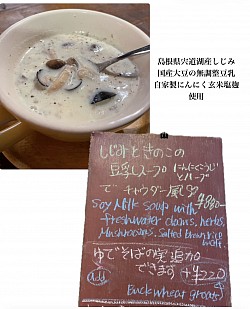 島根県宍道湖産しじみ
国産大豆の無調整豆乳
自家製にんにく玄米塩麹
使用
しじみときのこの
豆乳スープ にんにくこうじ
とハーブ
で チャウダー風 ¥880-
Soy Milk soup with
freshwater clams, herbs,
Mushrooms, Salted brown rice
ゆでそばの実追加
できます +¥220
Add
Buckwheat groats